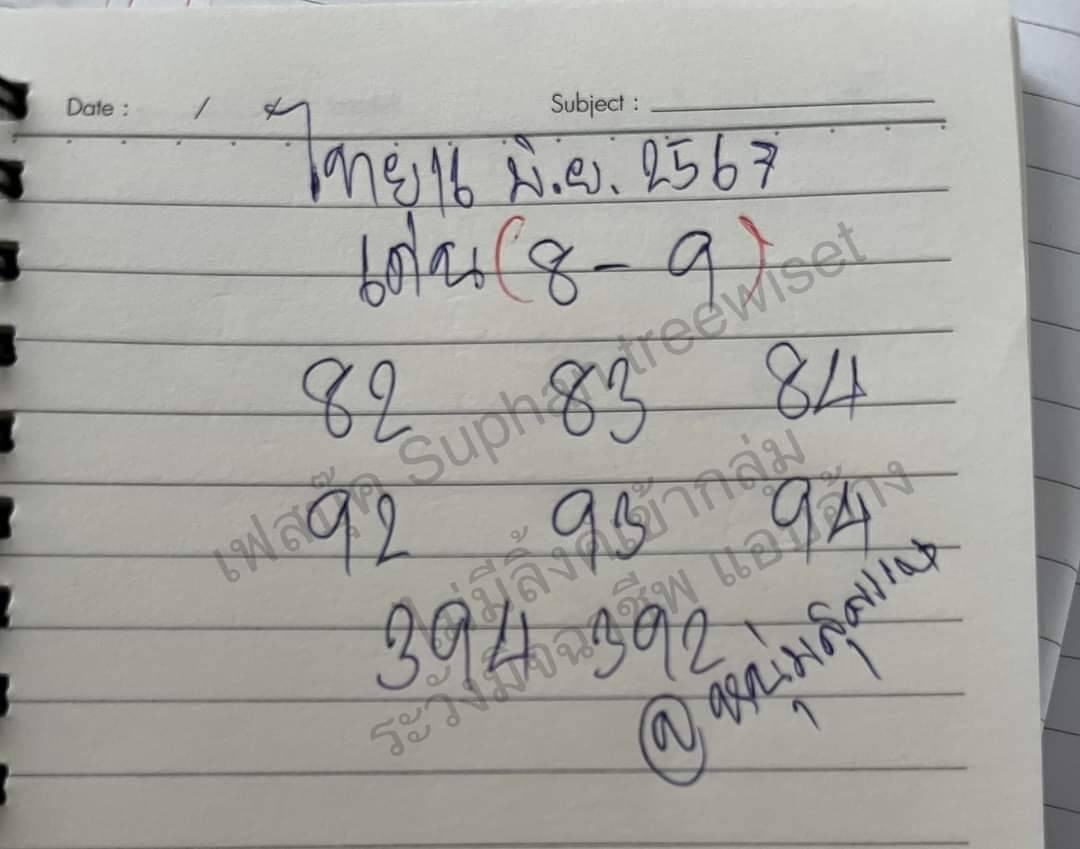 Date : / Subject :
ไทย 16 มิ.ย. 2567
เด่น (8 - 9)
82 83 84
92 93 94
394 392
@หนุ่มสุพรรณ
เฟสตุ๊ค Suphantreewiset
ไม่มีลิ้งค์เข้ากลุ่ม
ระวังมิจฉาชีพ แอบอ้าง